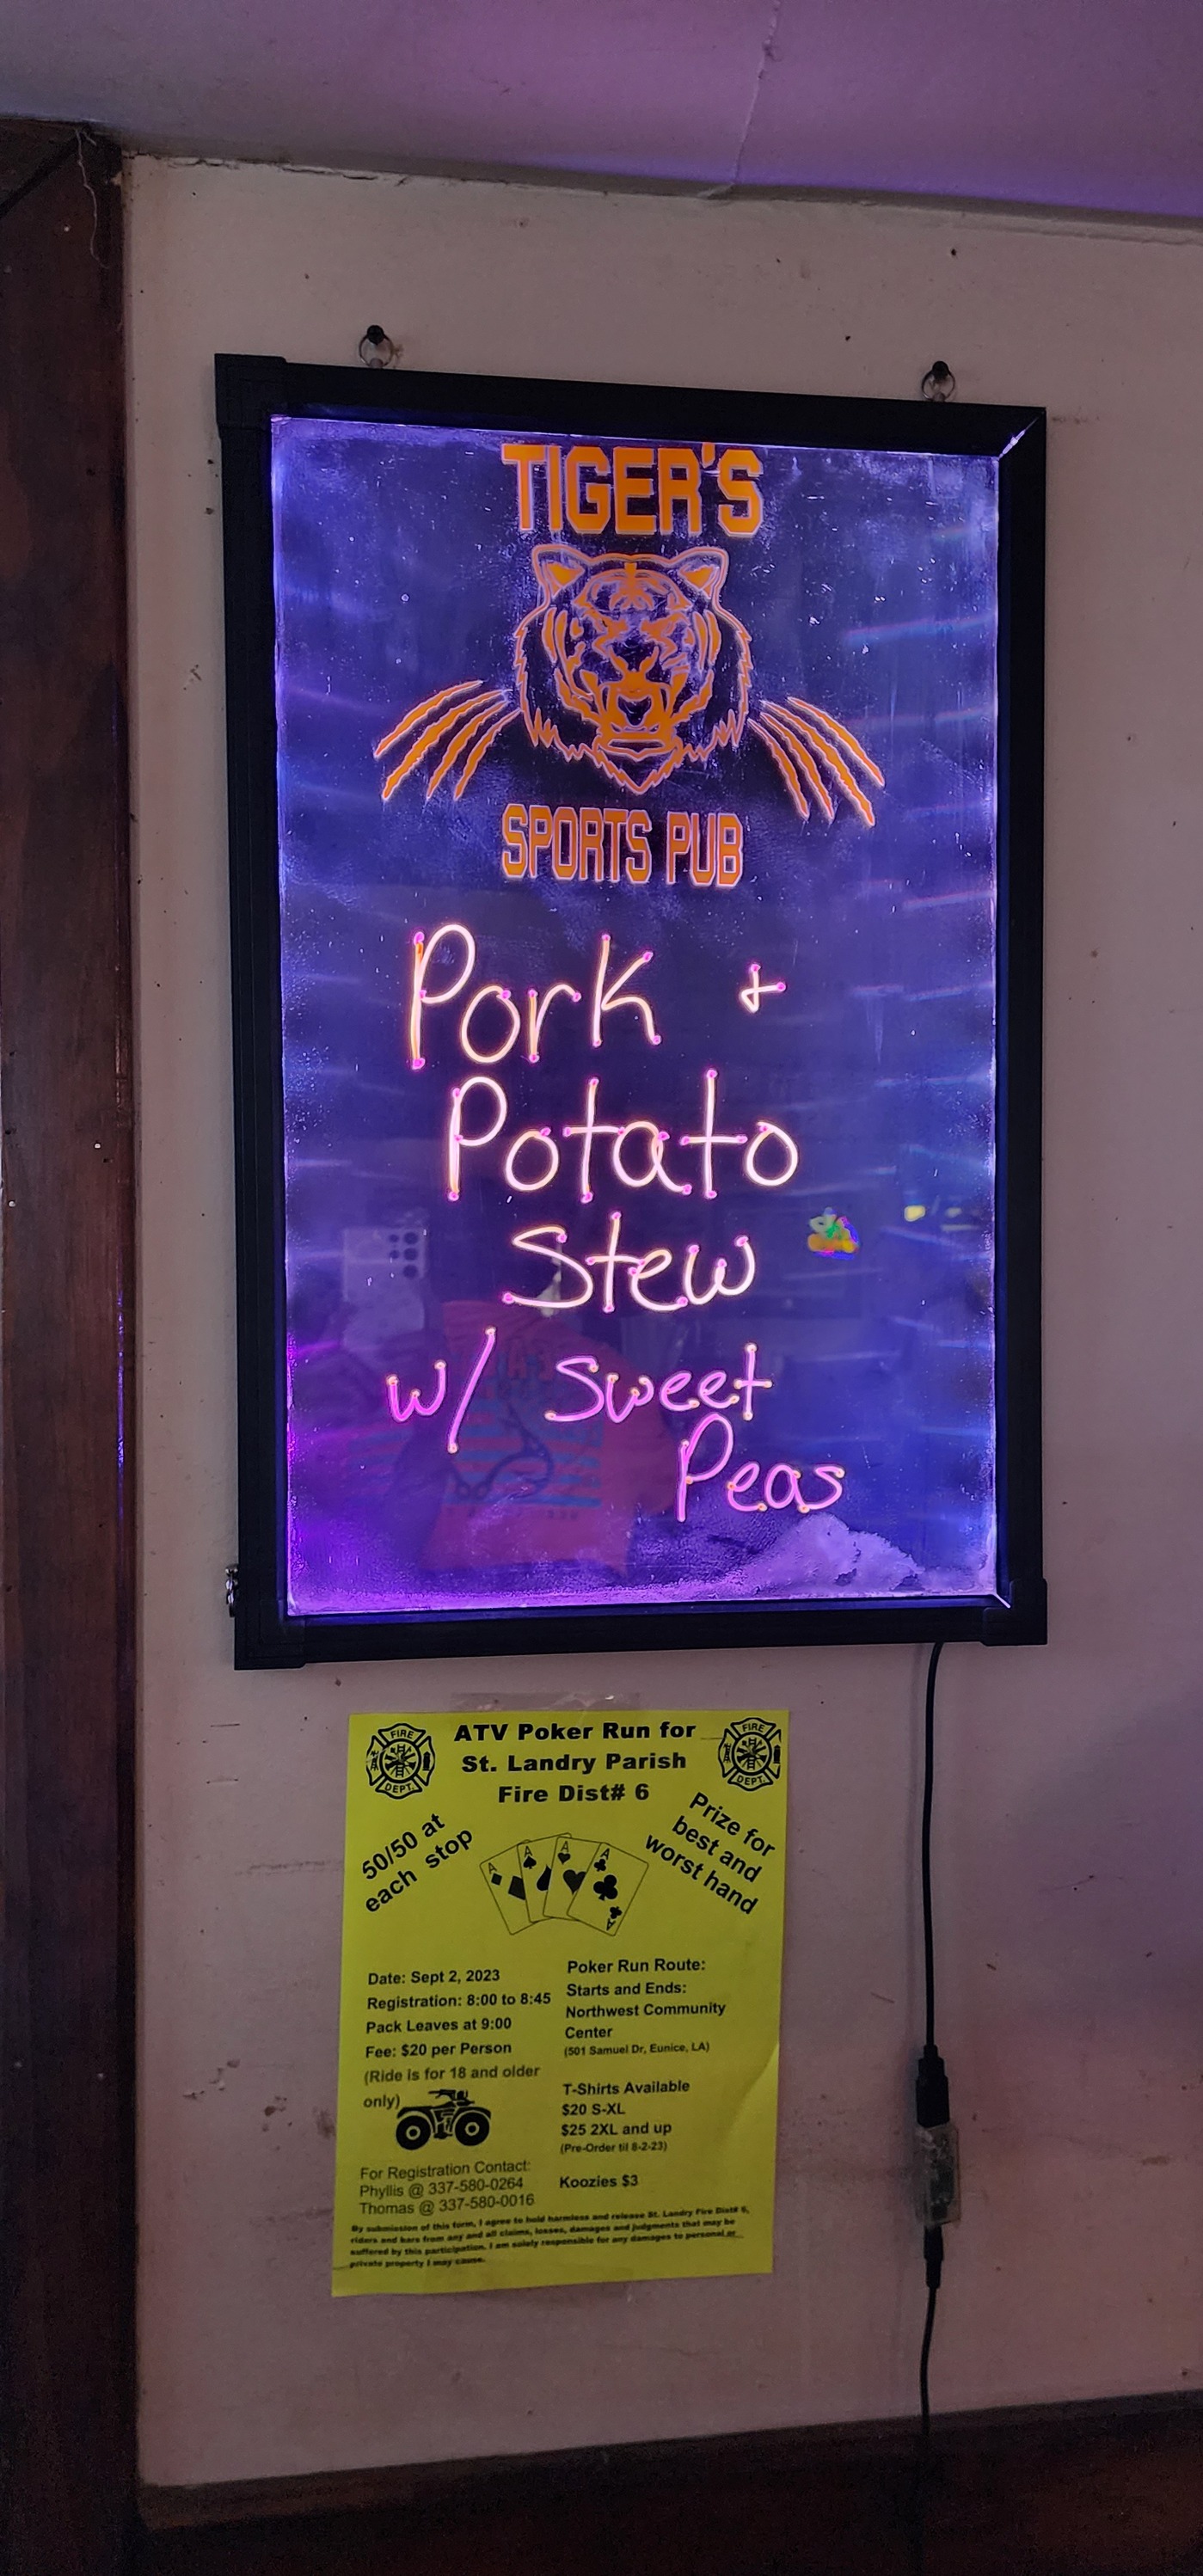 TIGER'S
SPORTS PUB
Pork &
Potato
Stew
w/ Sweet
Peas
FIRE
DEPT.
ATV Poker Run for
St. Landry Parish
Fire Dist# 6
FIRE
DEPT.
50/50 at
each stop
A
A
A
A
A
Prize for
best and
worst hand
Date: Sept 2, 2023
Registration: 8:00 to 8:45
Pack Leaves at 9:00
Fee: $20 per Person
(Ride is for 18 and older
only)
For Registration Contact:
Phyllis @ 337-580-0264
Thomas @ 337-580-0016
Poker Run Route:
Starts and Ends:
Northwest Community
Center
(501 Samuel Dr, Eunice, LA)
T-Shirts Available
$20 S-XL
$25 2XL and up
(Pre-Order til 8-2-23)
Koozies $3
By submission of this form, I agree to hold harmless and release St. Landry Fire Dist# 6,
riders and bars from any and all claims, losses, damages and judgments that may be
suffered by this participation. I am solely responsible for any damages to personal or
private property I may cause.